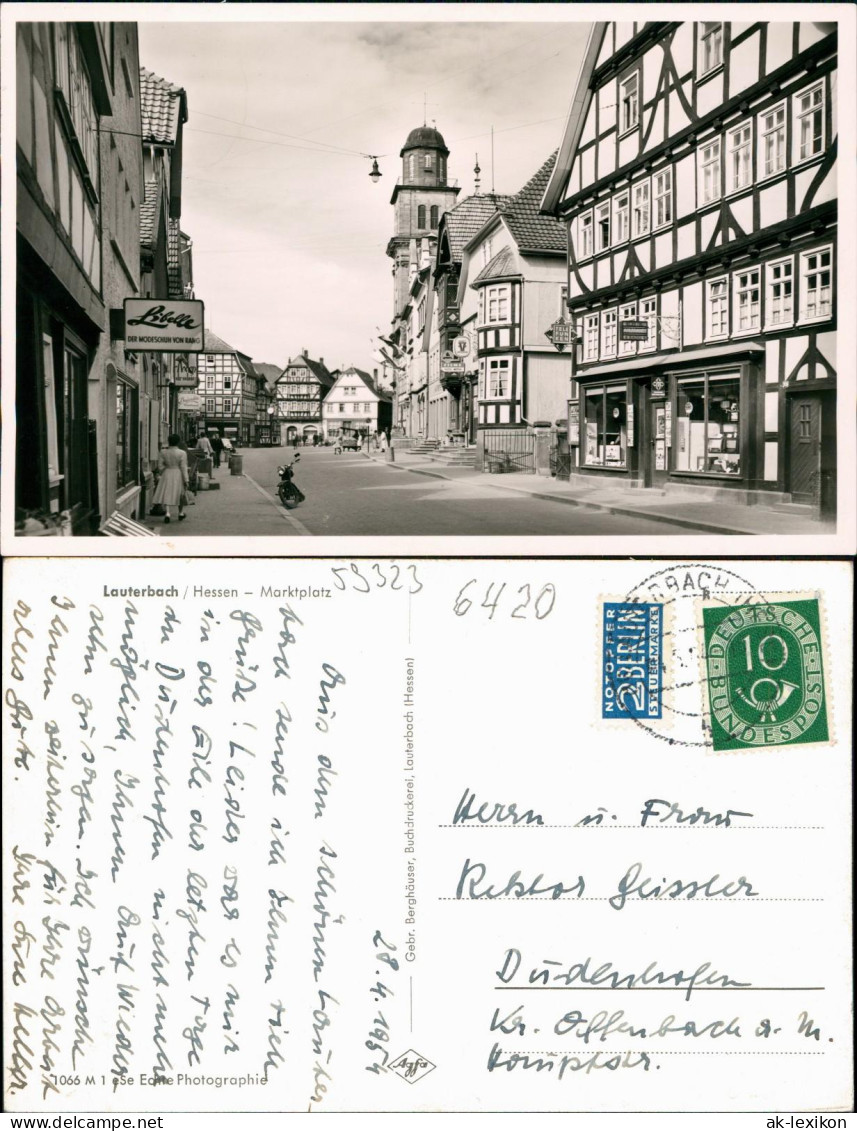 Libelle
DER MODESCHUH VON RANG
Lauterbach / Hessen – Marktplatz
59323
6420
28.4.1954
Aus dem schönen Lauter-
bach sende ich Ihnen viele
Grüße! Leider war es mir
in der Eile der letzten Tage
in Dudenhofen nicht mehr
möglich, Ihnen auf Wieder-
sehn zu sagen. Ich wünsche
Ihnen weiterhin für Ihre Arbeit
alles Gute.
Ihre
Keller.
1066 M 1 eSe Echte Photographie
Gebr. Berghäuser, Buchdruckerei, Lauterbach (Hessen)
Agfa
NOTOPFER
2 BERLIN
STEUERMARKE
DEUTSCHE
10
BUNDESPOST
Herrn u. Frau
Rektor Geissler
Dudenhofen
Kr. Offenbach a. M.
Hauptstr.
www.ak-ansichtskarten.de
ak-lexikon